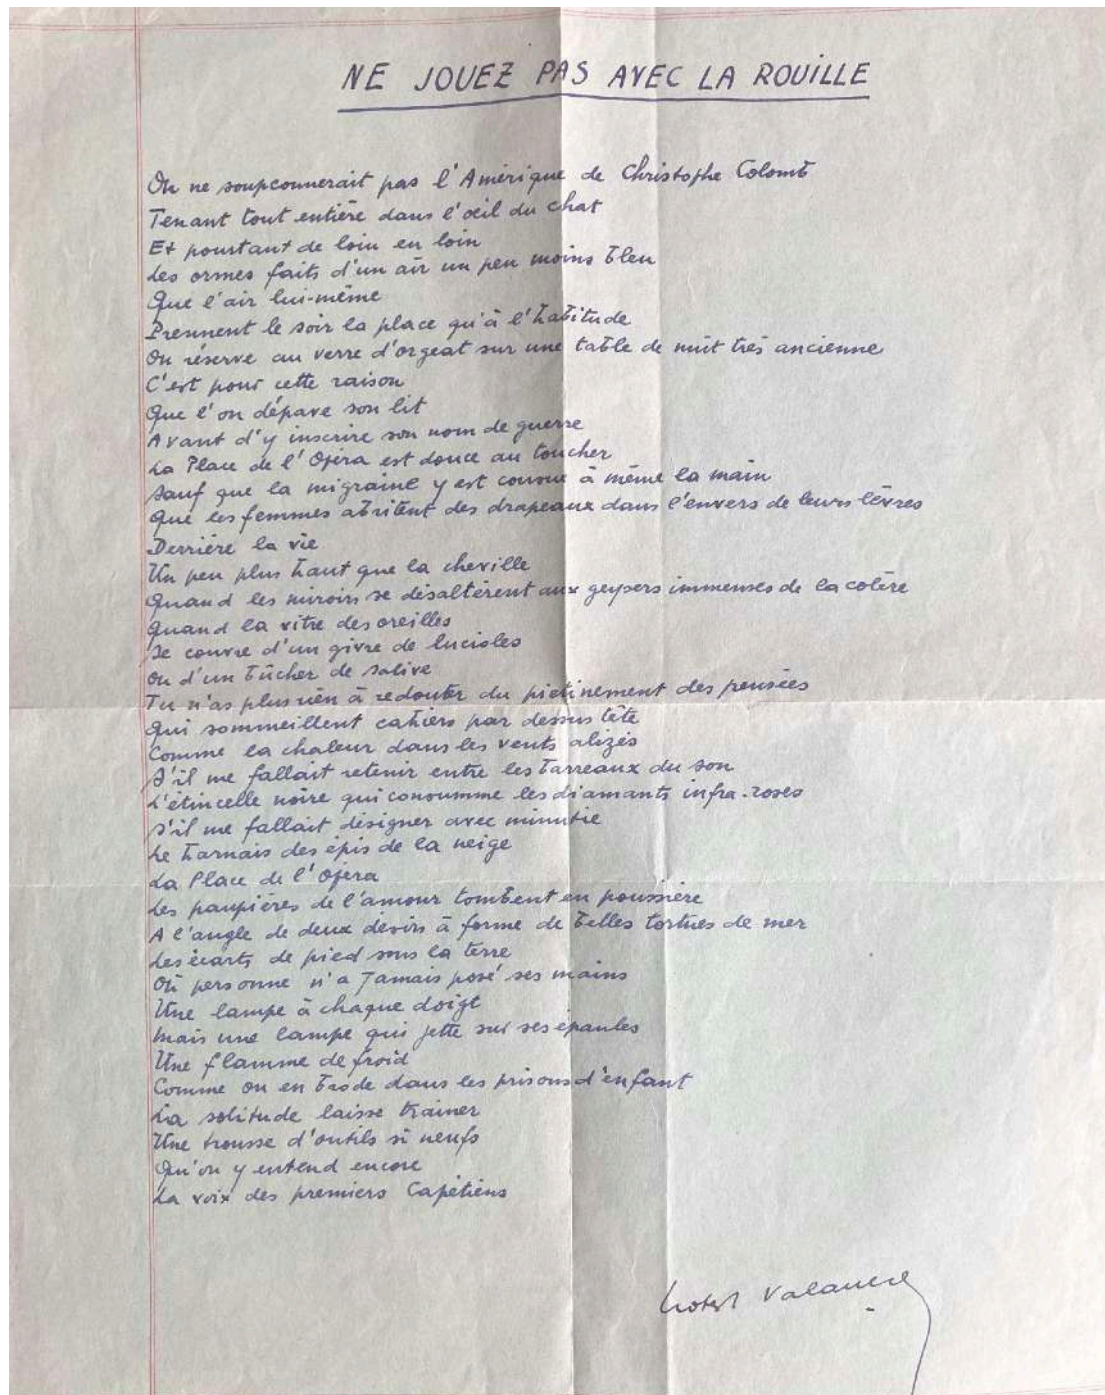 NE JOUEZ PAS AVEC LA ROUILLE
On ne soupconnerait pas l'Amérique de Christophe Colomb
Tenant tout entière dans l'œil du chat
Et pourtant de loin en loin
Les ormes faits d'un air un peu moins bleu
Que l'air lui-même
Prennent le soir la place qu'à l'habitude
On réserve au verre d'orgeat sur une table de nuit très ancienne
C'est pour cette raison
Que l'on dépave son lit
Avant d'y inscrire son nom de guerre
La Place de l'Opéra est douce au toucher
Sauf que la migraine y est cousue à même la main
Que les femmes abritent des drapeaux dans l'envers de leurs lèvres
Derrière la vie
Un peu plus haut que la cheville
Quand les miroirs se désaltèrent aux geysers immenses de la colère
Quand la vitre des oreilles
Se couvre d'un givre de lucioles
Ou d'un bûcher de salive
Tu n'as plus rien à redouter du piétinement des pensées
Qui sommeillent cahiers par dessus tête
Comme la chaleur dans les vents alizés
S'il me fallait retenir entre les barreaux du son
L'étincelle noire qui consumme les diamants infra-roses
S'il me fallait désigner avec minutie
Le harnais des épis de la neige
La Place de l'Opéra
Les paupières de l'amour tombent en poussière
A l'angle de deux désirs à forme de belles tortues de mer
Les écarts de pied sous la terre
Où personne n'a jamais posé ses mains
Une lampe à chaque doigt
Mais une lampe qui jette sur ses épaules
Une flamme de froid
Comme on en brode dans les prisons d'enfant
La solitude laisse trainer
Une trousse d'outils si neufs
Qu'on y entend encore
La voix des premiers Capétiens